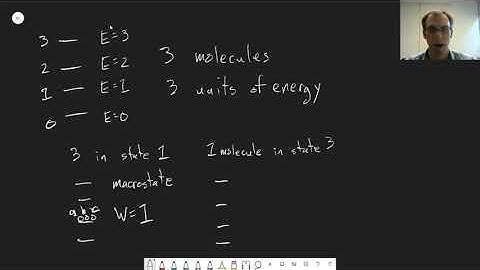 3 E=3
2 E=2
1 E=1
0 E=0
3 molecules
3 units of energy
3 in state 1
macrostate
a b c
W=1
1 molecule in state 3